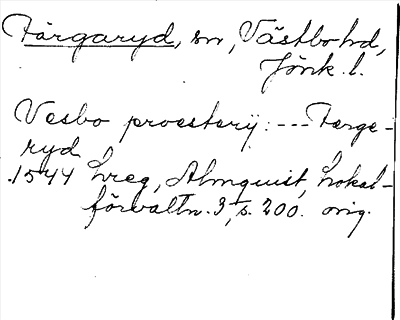 Färgaryd, sn, Västbo hd,
Jönk. l.
Vesbo proesterij: --- Færge-
ryd
.1544 Lreg, Almquist, Lokal-
förvaltn. 3, s. 200. orig.